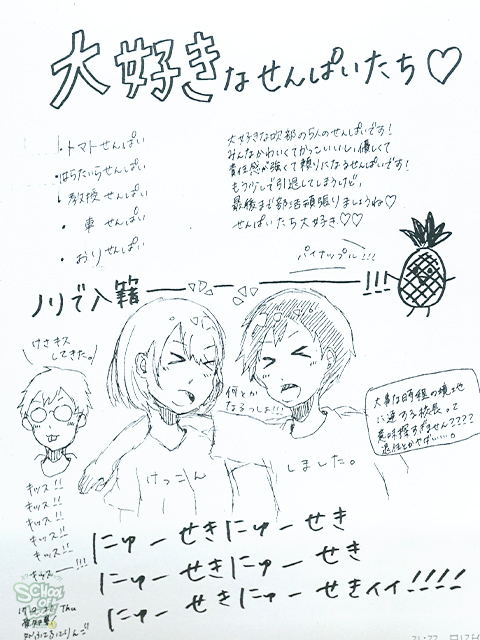 大好きなせんぱいたち♡
・トマトせんぱい
・はらたいらせんぱい
・教授せんぱい
・車せんぱい
・おりせんぱい
大好きな吹部の5人のせんぱいです!
みんなかわいくてかっこいいし、優しくて
責任感が強くて頼りになるせんぱいです!
もう少しで引退してしまうけど、
最後まで部活頑張りましょうね♡
せんぱいたち大好き♡♡
パイナップル!!!
ノリで入籍――!!!
けさキス
してきた。
何とか
なるっしょ!!!
けっこん
しました。
大事な時程の境地
に達する校長って
意味深すぎません????
キッス!!
キッス!!
キッス!!
キッス!!
キッス!!
キッスー!!!
にゅーせきにゅーせき
にゅーせきにゅーせき
にゅーせきにゅーせきィィ!!!!
SCHOOL
Thu